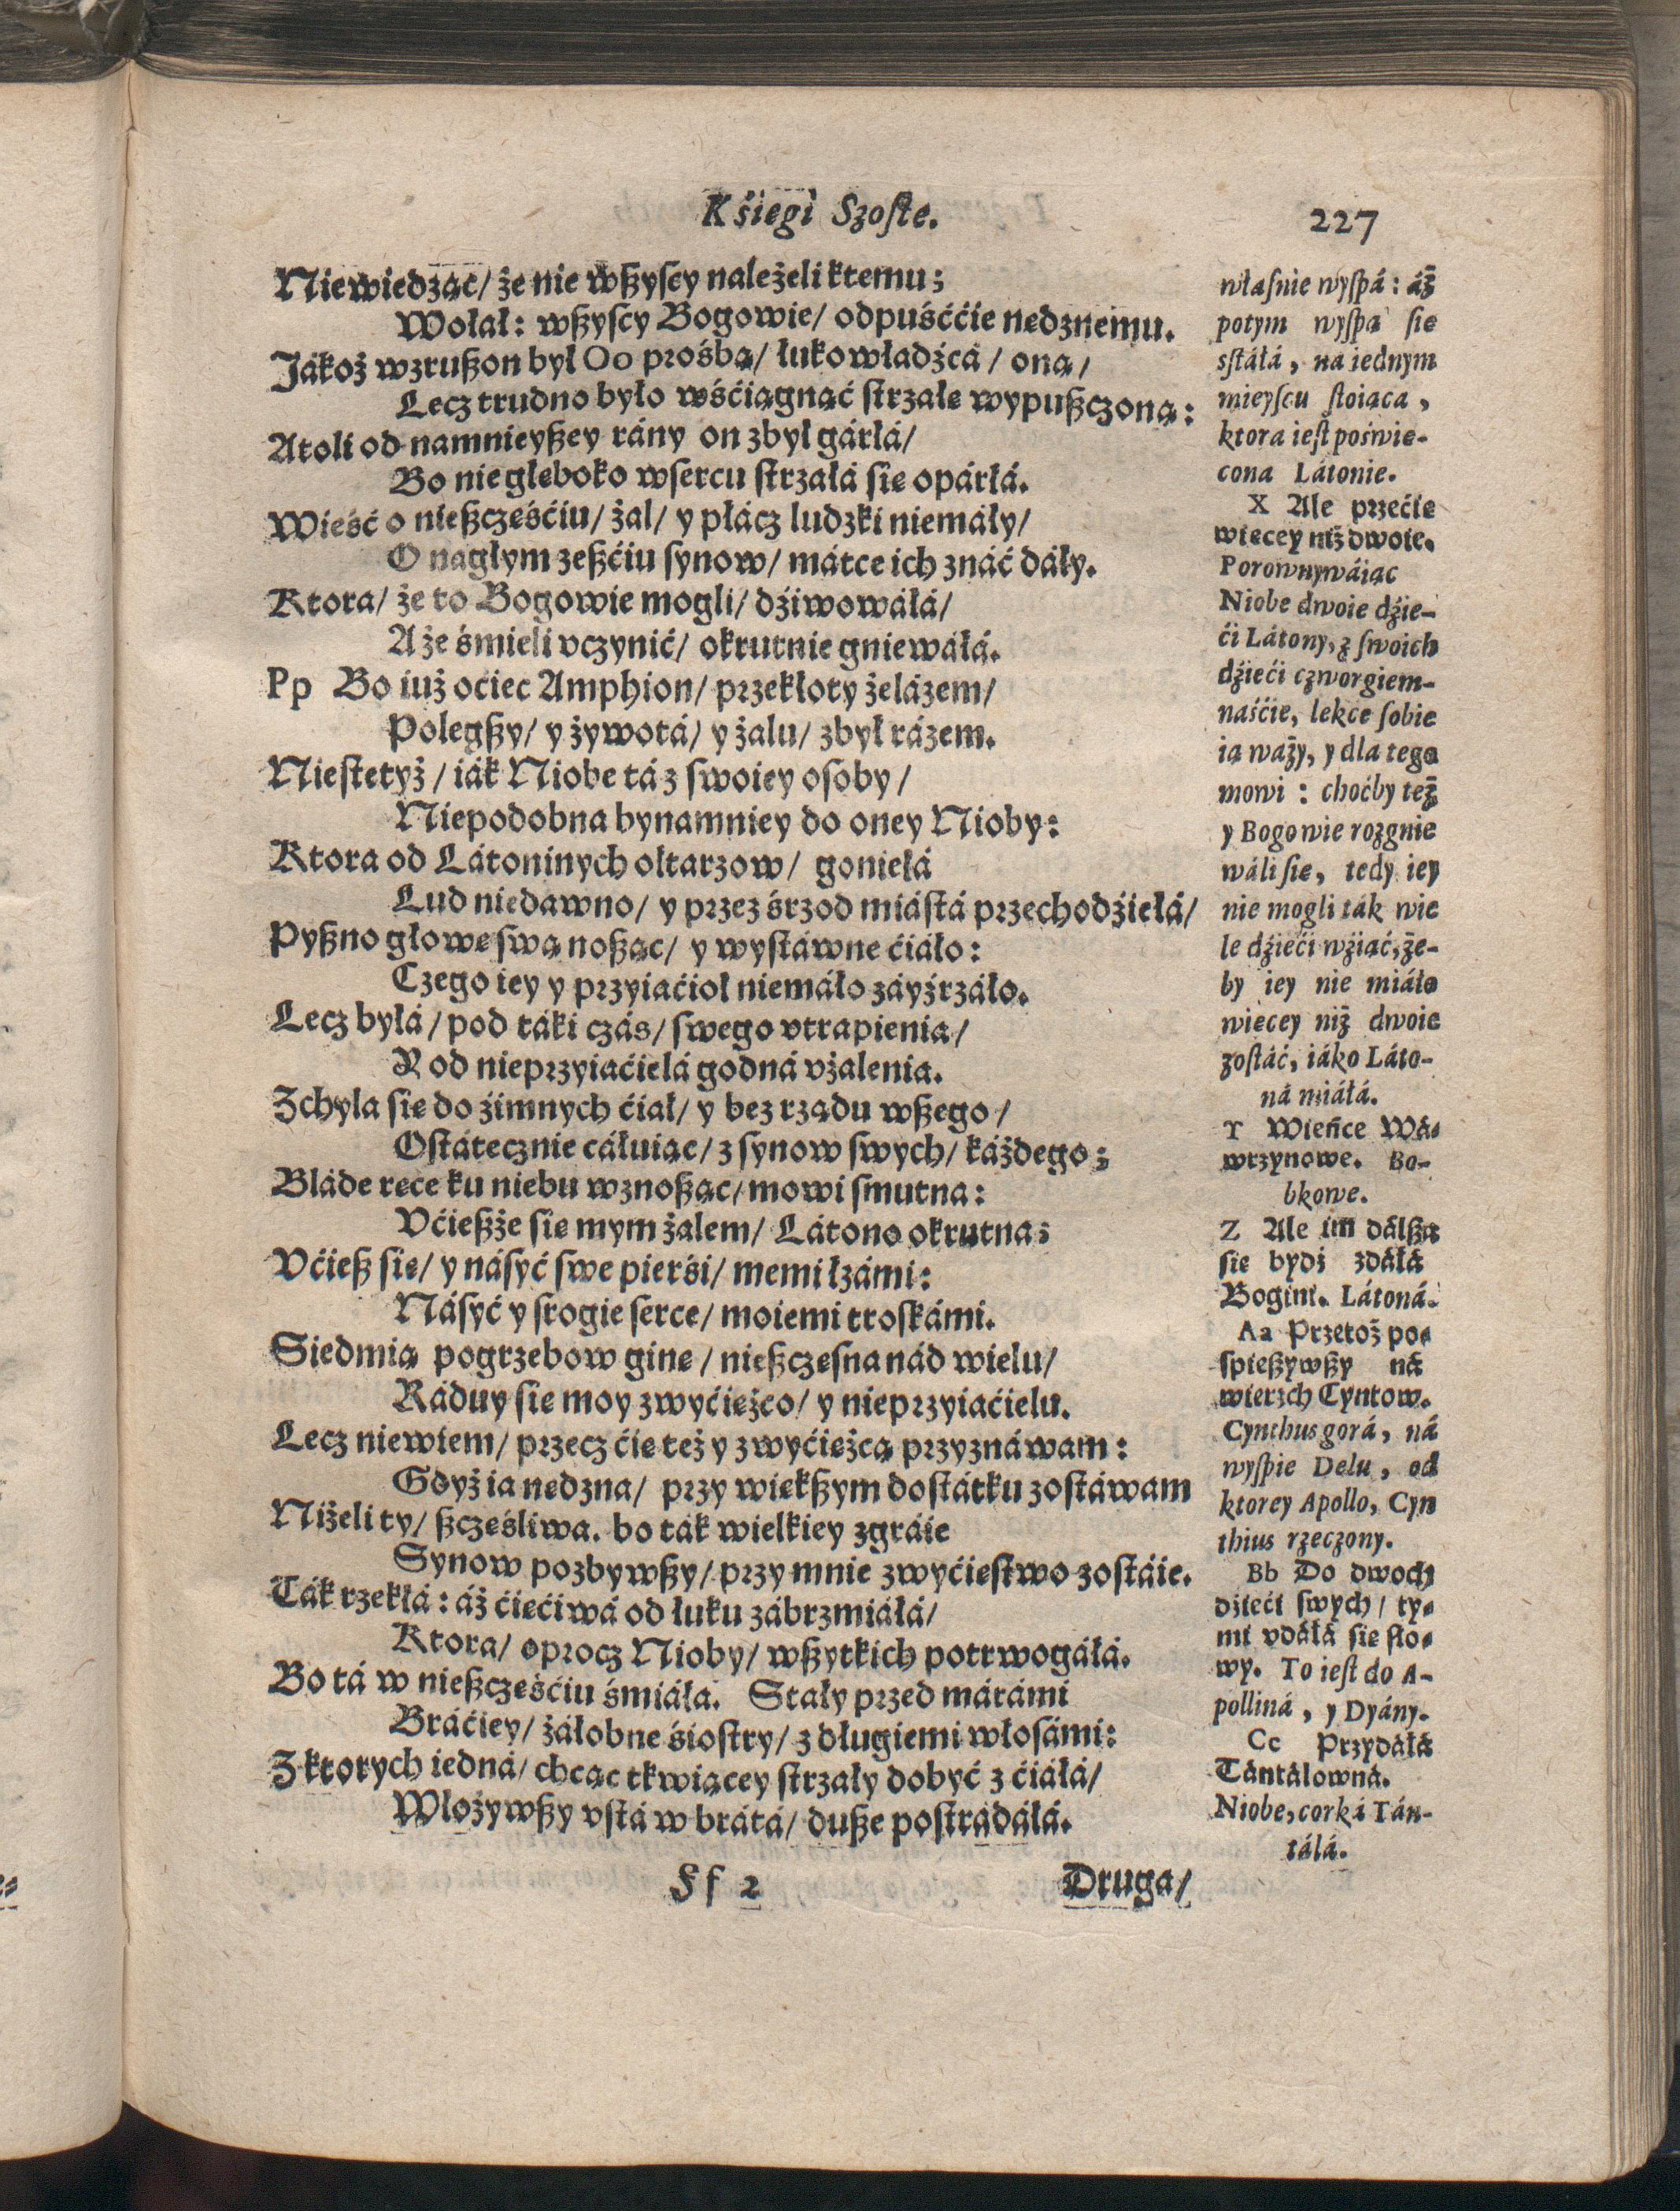 Kśięgi Szoste.
227
Niewiedząc/ że nie wßyscy należeli ktemu;
Wołał: wßyscy Bogowie/ odpuśććie nędznemu.
Jákoż wzrußon był Oo prośbą/ łukowładźcá/ oną/
Lecz trudno było wśćiągnąć strzałę wypußczoną:
Atoli od namnieyßey rány on zbył gárłá/
Bo niegłęboko w sercu strzałá się opárłá.
Wieść o nießczęśćiu/ żal/ y płácz ludzki niemáły/
O nagłym zeßćiu synow/ mátce ich znáć dáły.
Ktora/ że to Bogowie mogli/ dźiwowáłá/
A że śmieli vczynić/ okrutnie gniewáłá.
Pp Bo iuż oćiec Amphion/ przekłoty żelázem/
Polegßy/ y żywotá/ y żalu/ zbył rázem.
Niestetyż/ iák Niobe tá z swoiey osoby/
Niepodobna bynamniey do oney Nioby:
Ktora od Látoninych ołtarzow/ goniełá
Lud niedawno/ y przez śrzod miástá przechodźiełá/
Pyßno głowę swą noßąc/ y wystáwne ćiáło:
Czego iey y przyiaćioł niemáło záyźrzáło.
Lecz byłá/ pod táki czás/ swego vtrapienia/
Y od nieprzyiaćielá godná vżalenia.
Zchyla się do źimnych ćiał/ y bez rządu wßego/
Ostátecznie cáłuiąc/ z synow swych/ káżdego;
Bláde ręce ku niebu wznoßąc/ mowi smutna:
Vćießże się mym żalem/ Látono okrutna;
Vćieß się/ y násyć swe pierśi/ memi łzámi:
Násyć y srogie serce/ moiemi troskámi.
Siedmią pogrzebow ginę/ nießczęsna nád wielu/
Ráduy się moy zwyćiężco/ y nieprzyiaćielu.
Lecz niewiem/ przecz ćię też y zwyćiężcą przyznáwam:
Gdyż ia nędzna/ przy większym dostátku zostáwam
Niżeli ty/ ßczęśliwa. bo ták wielkiey zgráie
Synow pozbywßy/ przy mnie zwyćięstwo zostáie.
Ták rzekłá: áż ćięćiwá od łuku zábrzmiáłá/
Ktora/ oprocz Nioby/ wßytkich potrwogáłá.
Bo tá w nießczęśćiu śmiáła. Stały przed márámi
Bráćiey/ żáłobne śiostry/ z długiemi włosámi:
Z ktorych iedná/ chcąc tkwiącey strzały dobyć z ćiáłá/
Włożywßy vstá w brátá/ dußę postrádáłá.
Ff 2
Druga/
własnie wyspá: áż
potym wyspą się
sstáłá, na iednym
mieyscu stoiąca,
ktora iest poświę-
cona Látonie.
X Ale przećię
więcey niż dwoie.
Porownywáiąc
Niobe dwoie dźie-
ći Látony, z swoich
dźieći czworgiem-
naśćie, lekce sobie
ią waży, y dla tego
mowi: choćby też
y Bogowie rozgnie
wáli się, tedy iey
nie mogli ták wie
le dźieći wźiąć, że-
by iey nie miáło
więcey niż dwoie
zostáć, iáko Láto-
ná miáłá.
Y Wieńce Wá-
wrzynowe. Bo-
bkowe.
Z Ale im dálßą
się bydź zdáłá
Bogini. Látoná.
Aa Przetoż po-
spießywßy ná
wierzch Cyntow.
Cynthus gorá, ná
wyspie Delu, od
ktorey Apollo, Cyn
thius rzeczony.
Bb Do dwoch
dźieći swych/ ty-
mi vdáłá się sło-
wy. To iest do A-
polliná, y Dyány.
Cc Przydáłá
Tántálowná.
Niobe, corká Tán-
tálá.